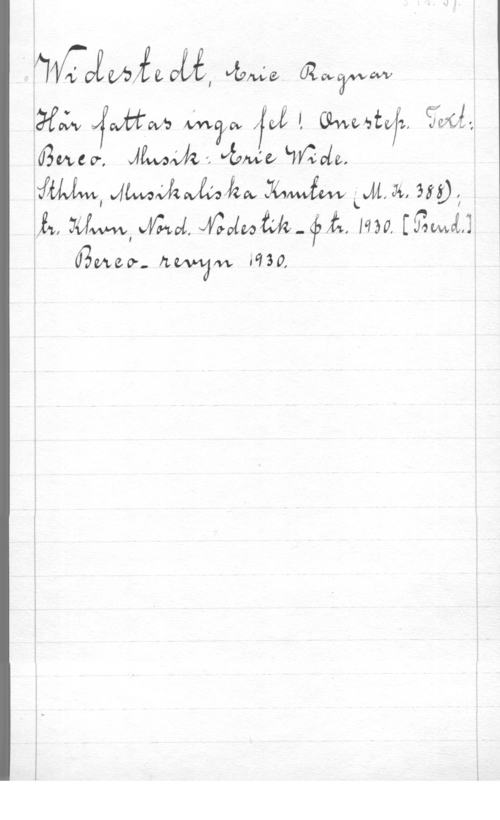 Widestedt, Eric Ragnar
Här fattas inga fel! Onestep. Text:
Berco. Musik: Eric Wide.
Sthlm, Musikaliska Knuten (M. K. 388);
tr. Khvn, Nord. Nodestik- & tr. 1930. [Pseud.]
Berco- revyn 1930.